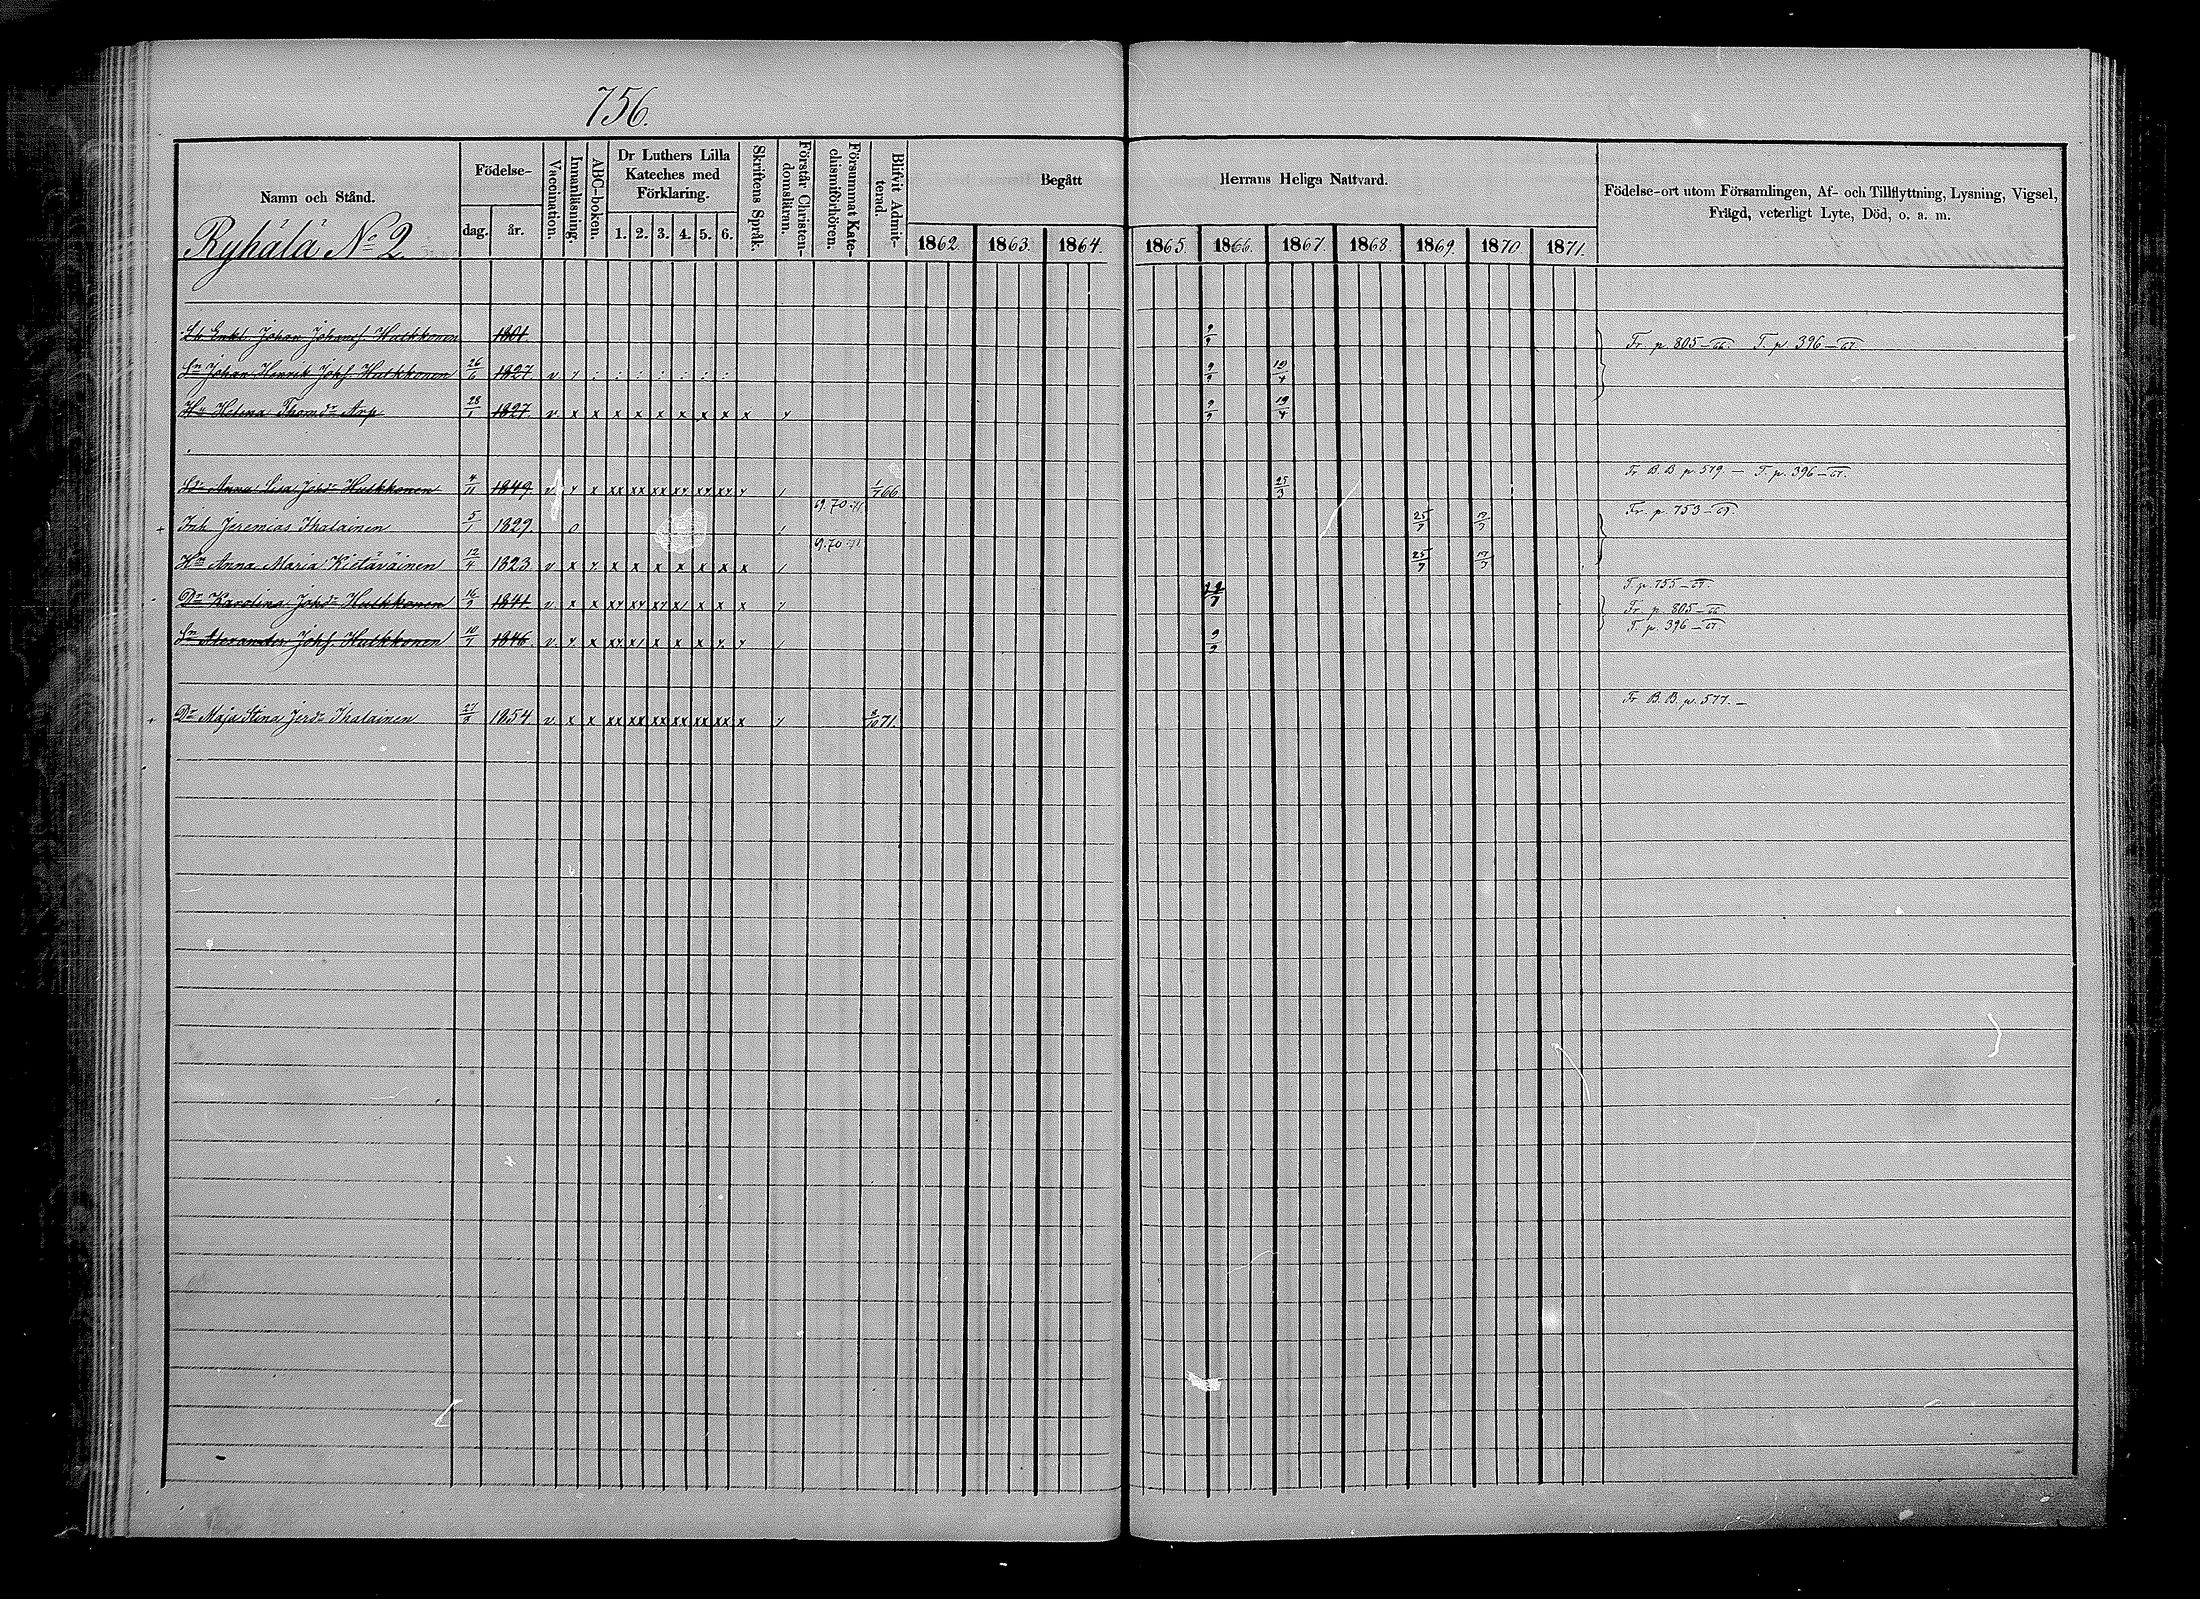 756.
Namn och Stånd.
Födelse-
dag.
år.
Vaccination.
Innanläsning.
ABC-boken.
Dr Luthers Lilla
Kateches med
Förklaring.
1. 2. 3. 4. 5. 6.
Skriftens Språk.
Förstår Christen-
domsläran.
Försummat Kate-
chismiförhören.
Blifvit Admit-
terad.
Begått Herrans Heliga Nattvard.
1862. 1863. 1864. 1865. 1866. 1867. 1868. 1869. 1870 1871.
Födelse-ort utom Församlingen, Af- och Tillflyttning, Lysning, Vigsel,
Frägd, veterligt Lyte, Död, o. a. m.
Ryhälä No 2.
Enkl. Johan Johansf. Hulkkonen 1801. 9/9 Fr. p. 805-66. T. p. 396-67.
Sn Johan Henrik Johsf. Hulkkonen 26/6 1827 v 9/9 19/4
Hu Helena Thomdr Arp 28/1 1827. v x x x x x x x x x 9/9 19/4
Dr Anna Lisa Johdr Hulkkonen 4/11 1849. v x x xx xx xx xx xx xx 1/7 66 25/3 Fr B. B. p. 579. - T. p. 396-67.
+ Inh. Jeremias Ihalainen 5/1 1829. 0 69.70.71 25/7 Fr. p. 753-69.
Hu Anna Maria Kietäväinen 12/4 1823. v x x x x x x x x x 69.70.71 25/7
Dr Karolina Johdr Hulkkonen 16/9 1841 v. x x T. p. 755-67.
Fr. p. 805-66
Sn Alexander Johsf. Hulkkonen 10/4 1846. v. x x 9/9 T. p. 396-67.
+ Dr Maja Stina Jerdr Ihalainen 27/8 1854 v. x x xx xx xx xx xx xx x 8/10 71. Fr B. B. p. 577. -